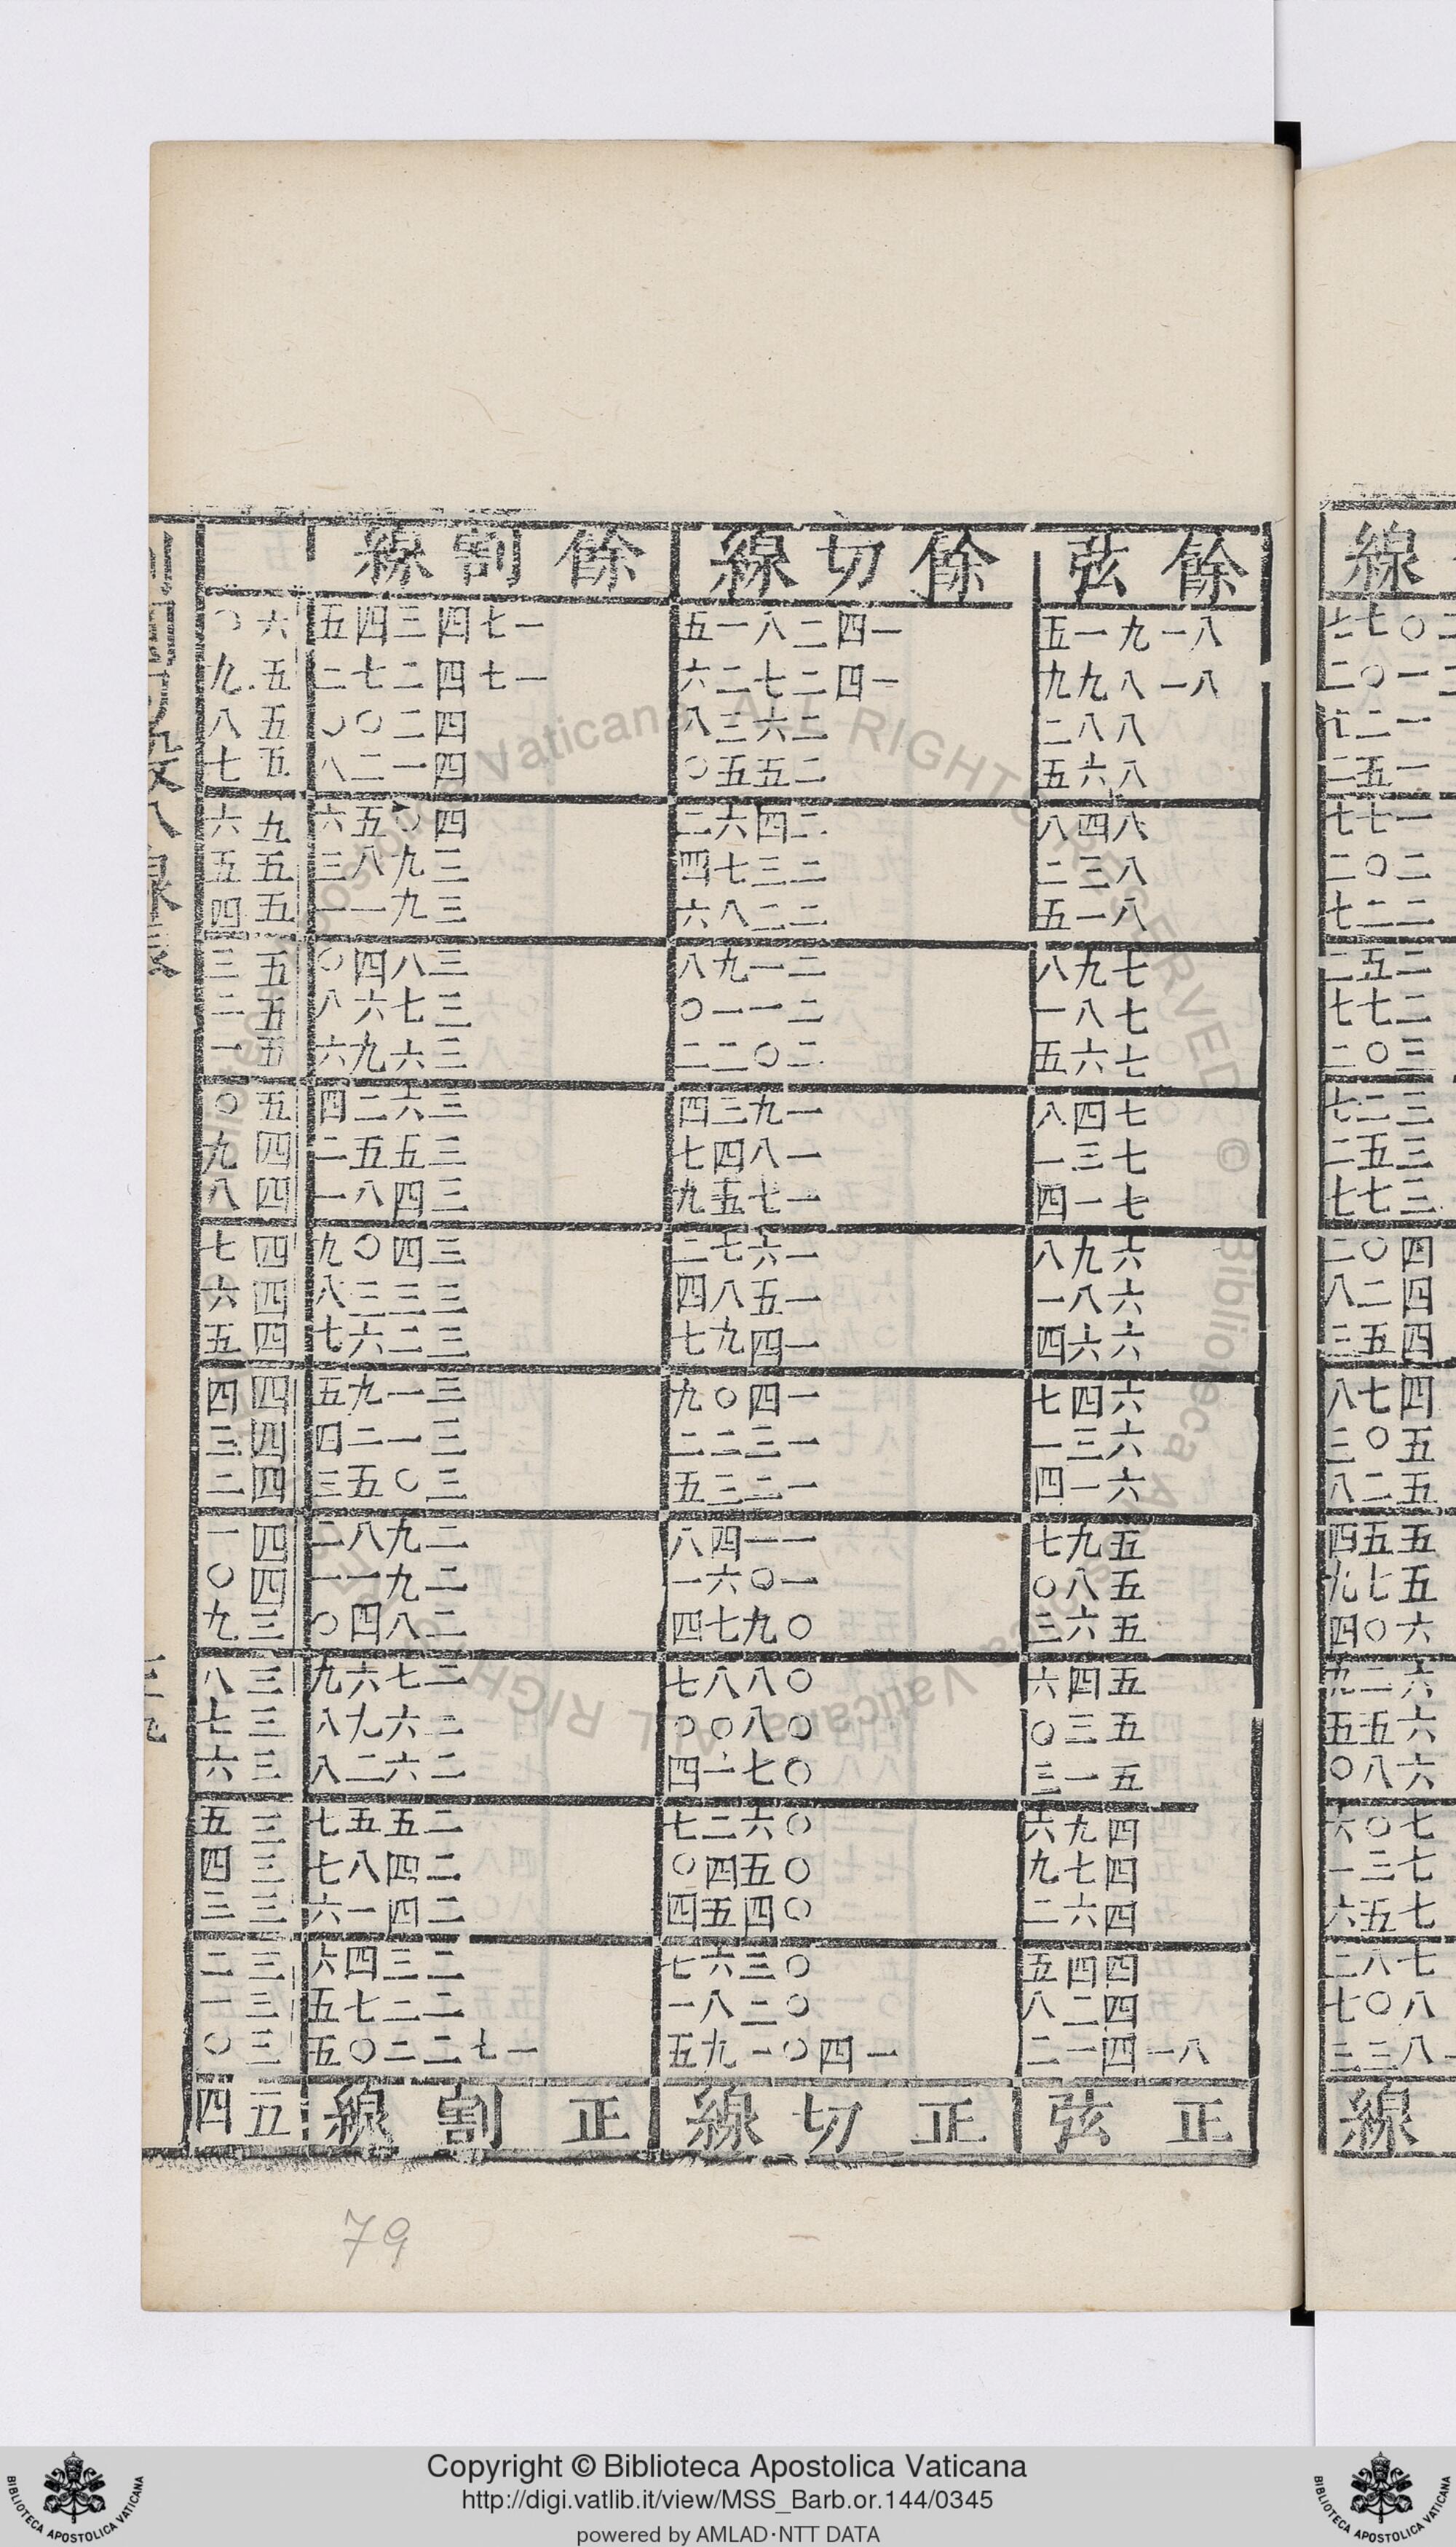 線
〇七七
一〇二
一二七
一五二
一七七
二〇二
二二七
二五二
二七七
三〇二
三二七
三五二
三七七
四〇二
四二八
四五三
四七八
五〇三
五二八
五五四
五七九
六〇四
六二九
六五五
六八〇
七〇六
七三一
七五六
七八二
八〇七
八三三
線
餘弦 餘切線 餘割線
八一九一五 一四二八一五 一七四三四五 六〇
八一八九九 一四二七二六 一七四二七二 五九
八八二 二六三八 四二〇〇 五八
八六五 二五五〇 四一二八 五七
八四八 二四六二 四〇五六 九六
八三二 二三七四 三九八三 五五
八一五 二二八六 三九一一 五四
七九八 二一九八 三八四〇 五三
七八一 二一一〇 三七六八 五二
七六五 二〇二二 三六九六 五一
七四八 一九三四 三六二四 五〇
七三一 一八四七 三五五二 四九
七一四 一七五九 三四八一 四八
六九八 一六七二 三四〇九 四七
六八一 一五八四 三三三八 四六
六六四 一四九七 三二六七 四五
六四七 一四〇九 三一九五 四四
六三一 一三二二 三一二四 四三
六一四 一二三五 三〇五三 四二
五九七 一一四八 二九八二 四一
五八〇 一〇六一 二九一一 四〇
五六三 〇九七四 二八四〇 三九
五四六 〇八八七 二七六九 三八
五三〇 〇八〇〇 二六九八 三七
五一三 〇七一四 二六二八 三六
四九六 〇六二七 二五五七 三五
四七九 〇五四〇 二四八七 三四
四六二 〇四五四 二四一六 三三
四四五 〇三六七 二三四六 三二
四二八 〇二八一 二二七五 三一
八一四一二 一四〇一九五 一七二二〇五 三〇
正弦 正切線 正割線 五四
79
Copyright © Biblioteca Apostolica Vaticana
http://digi.vatlib.it/view/MSS_Barb.or.144/0345
powered by AMLAD·NTT DATA